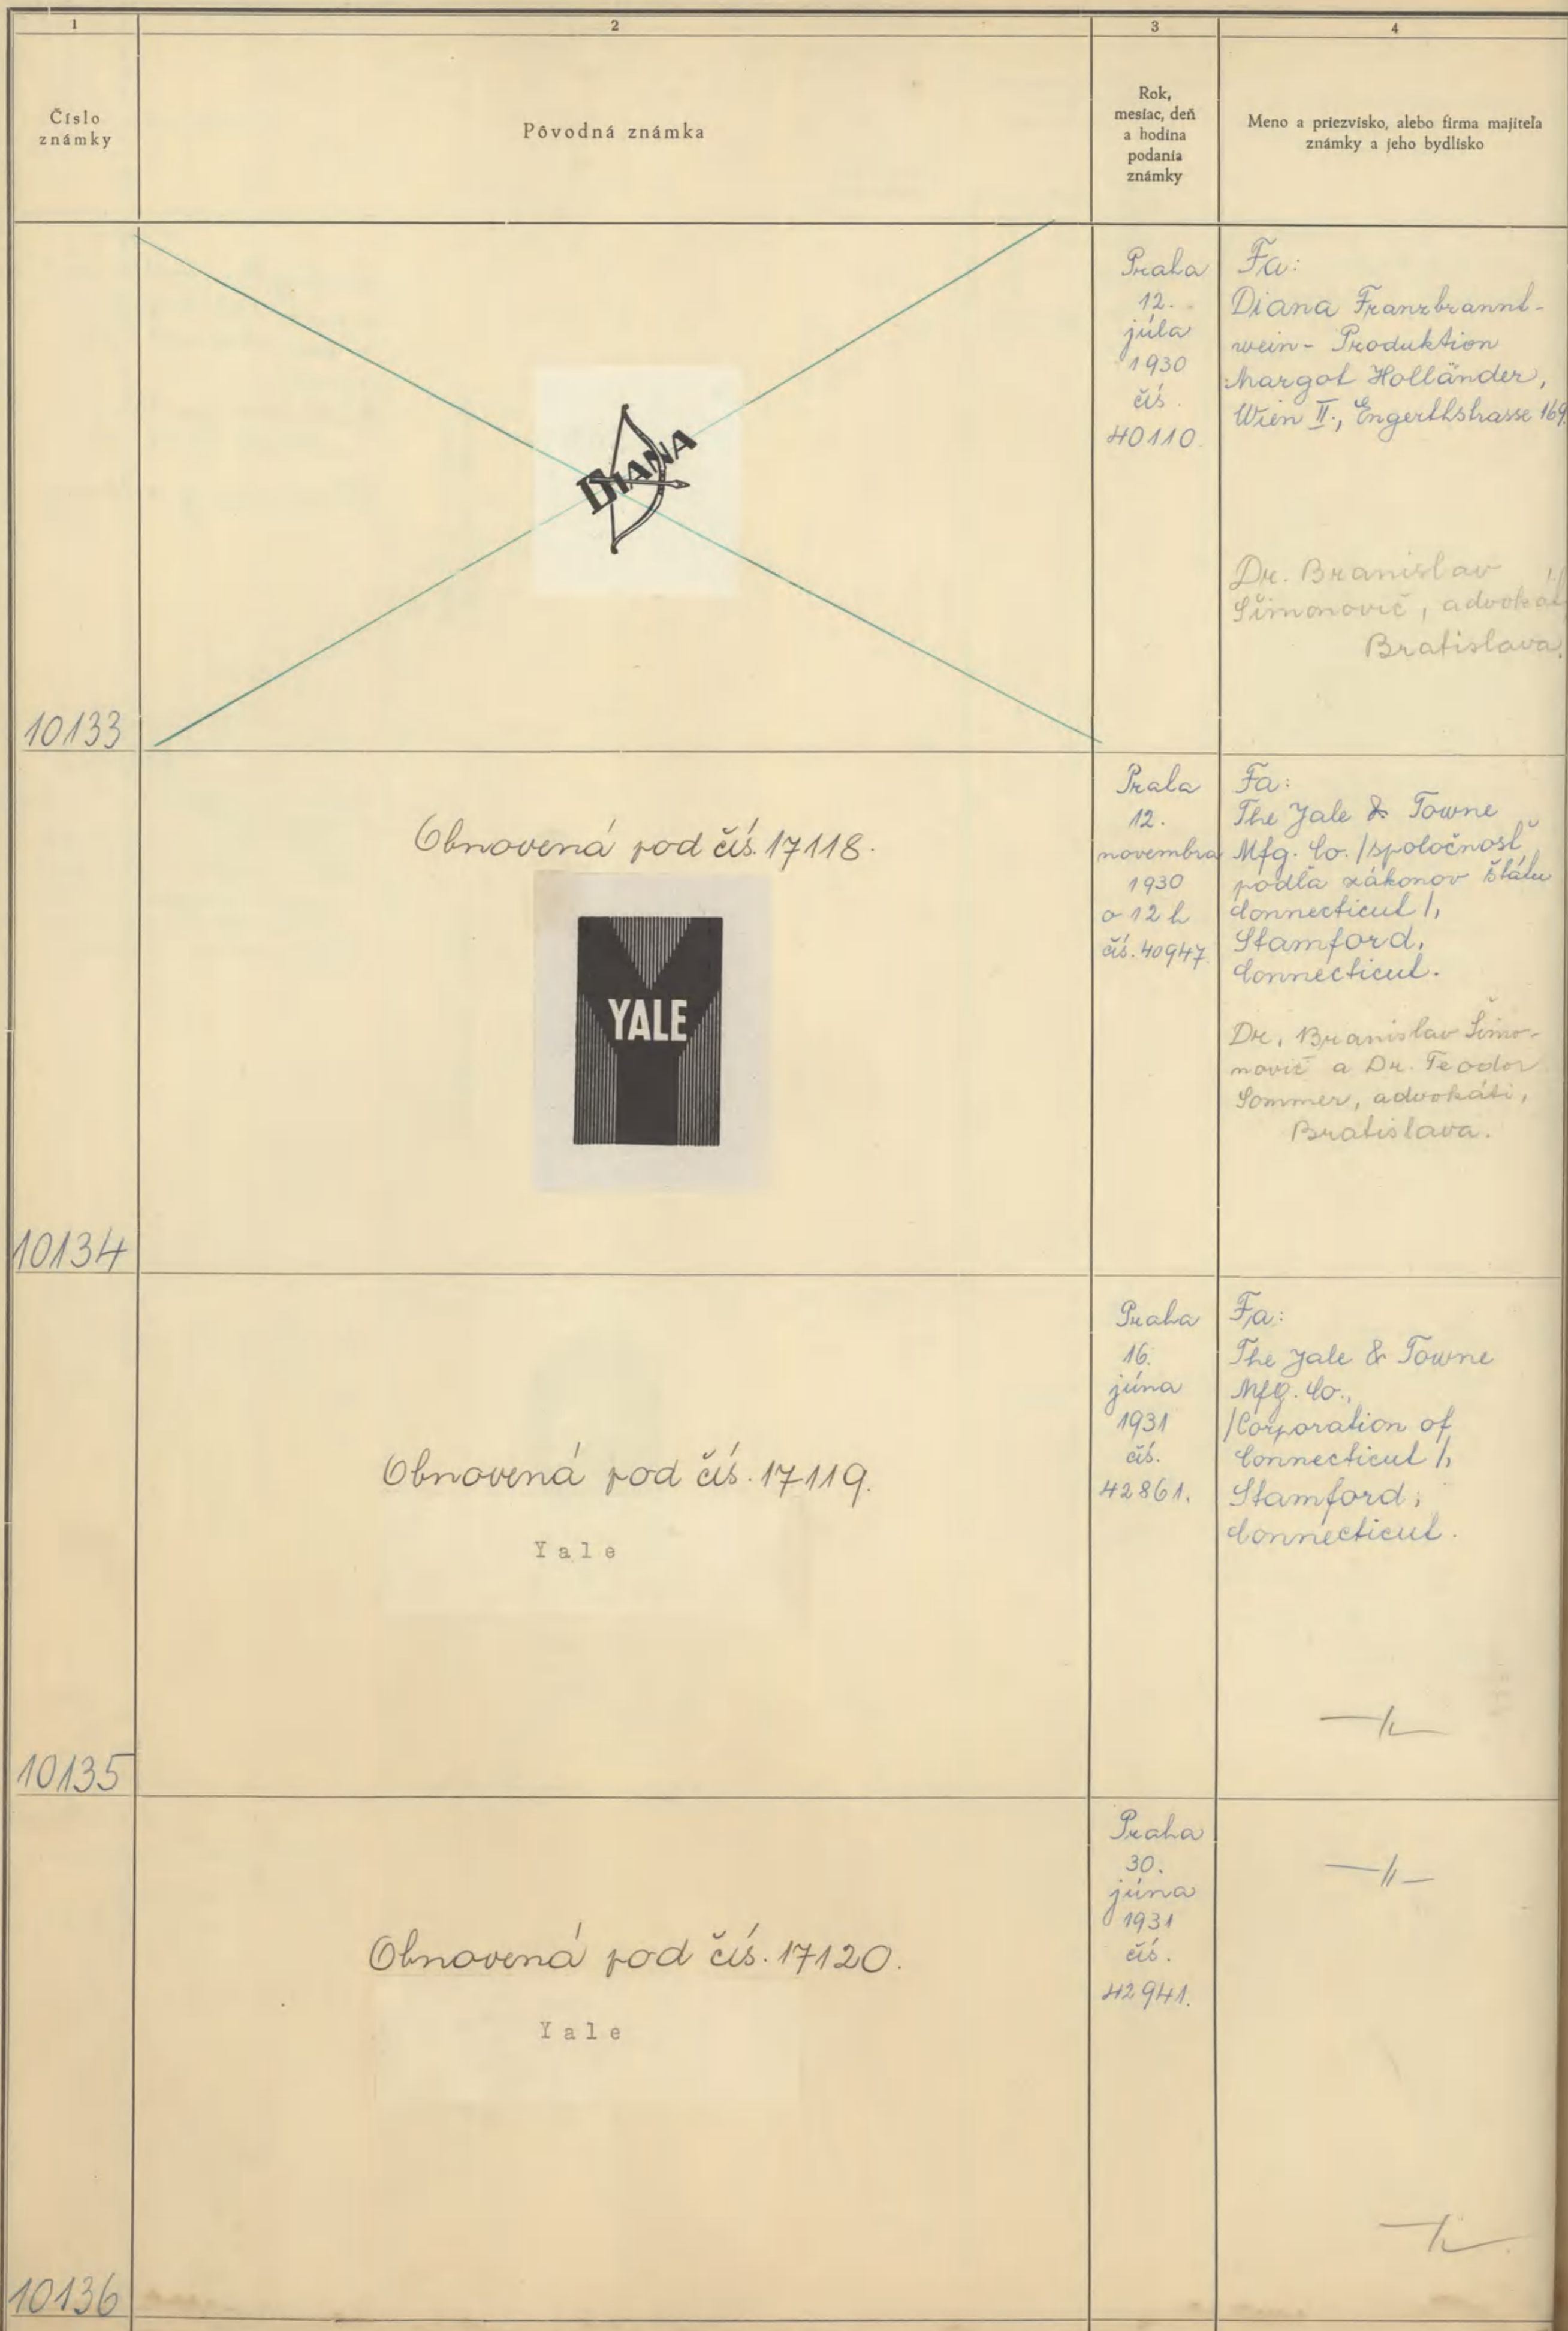 1
2
3
4
Číslo
známky
Pôvodná známka
Rok,
mesiac, deň
a hodina
podania
známky
Meno a priezvisko, alebo firma majiteľa
známky a jeho bydlisko
10133
DIANA
Praha
12.
júla
1930
čís.
40110
Fa:
Diana Franzbrannt-
wein - Produktion
Margot Holländer,
Wien II., Engerthstrasse 169
Dr. Branislav
Šimonovič, advokát
Bratislava.
10134
Obnovená pod čís. 17118.
YALE
Praha
12.
novembra
1930
o 12 h
čís. 40947
Fa:
The Yale & Towne
Mfg. Co. /spoločnosť
podľa zákonov štátu
Connecticut/,
Stamford,
Connecticut.
Dr. Branislav Šimo-
novič a Dr. Teodor
Sommer, advokáti,
Bratislava.
10135
Obnovená pod čís. 17119.
Yale
Praha
16.
júna
1931
čís.
42861.
Fa:
The Yale & Towne
Mfg. Co.,
/Corporation of
Connecticut/,
Stamford,
Connecticut.
—//—
10136
Obnovená pod čís. 17120.
Yale
Praha
30.
júna
1931
čís.
42941.
—//—
—//—